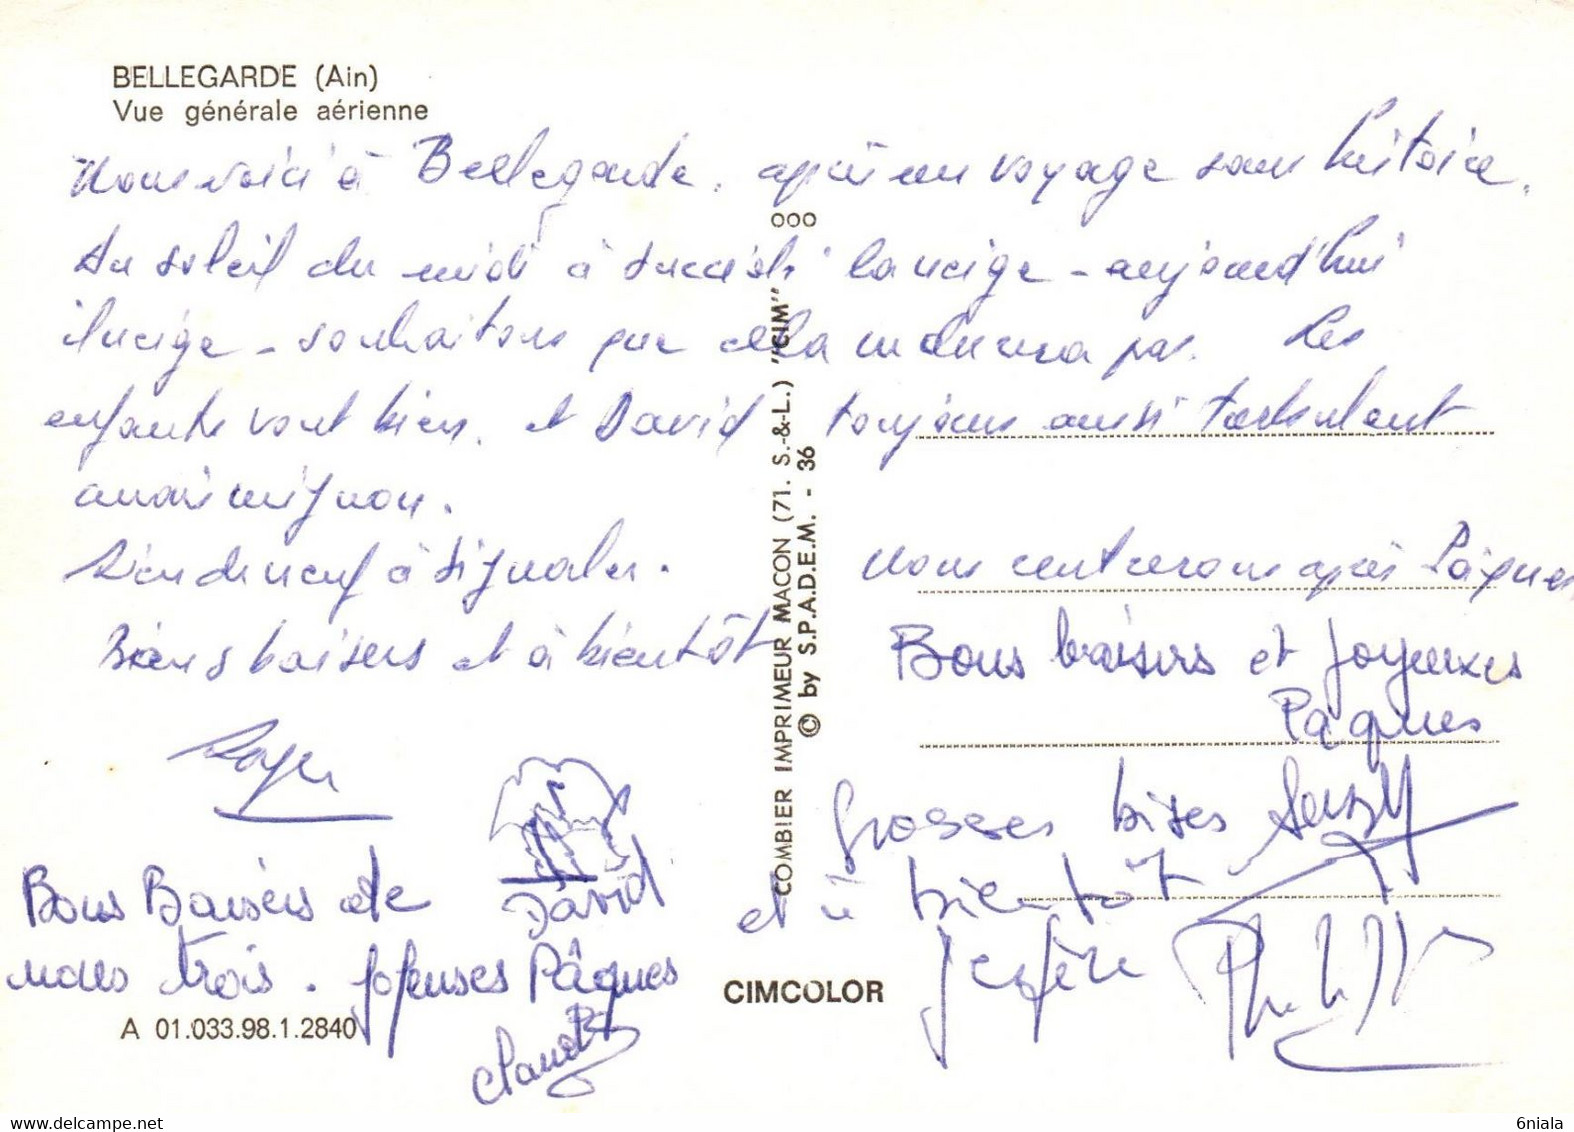 BELLEGARDE (Ain)
Vue générale aérienne
Nous voici à Bellegarde, après un voyage sans histoire.
Au soleil du midi à succédé la neige - aujourd'hui
il neige - souhaitons que cela ne durera pas. Les
enfants vont bien, et David toujours aussi turbulent
mais mignon.
Rien de neuf à signaler.
Bons baisers et à bientôt
Roger
Bons Baisers de
nous trois. Joyeuses Pâques
David
Claude
A 01.033.98.1.2840
ooo
COMBIER IMPRIMEUR MACON (71. S.-&-L.) "CIM"
© by S.P.A.D.E.M. - 36
CIMCOLOR
Nous rentrerons après Pâques
Bons baisers et Joyeuses
Pâques
Grosses bises
et à bientôt
www.delcampe.net
6niala